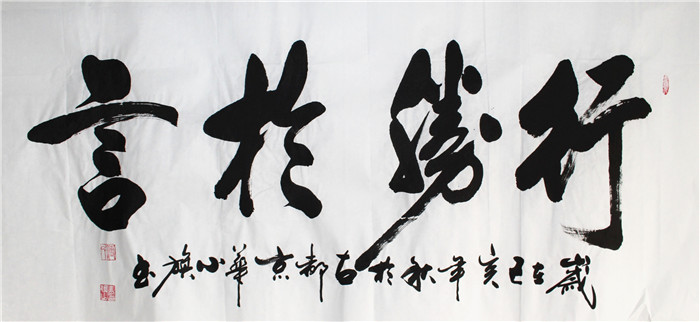 行勝於言
歲在己亥年秋於古都京華小旗书